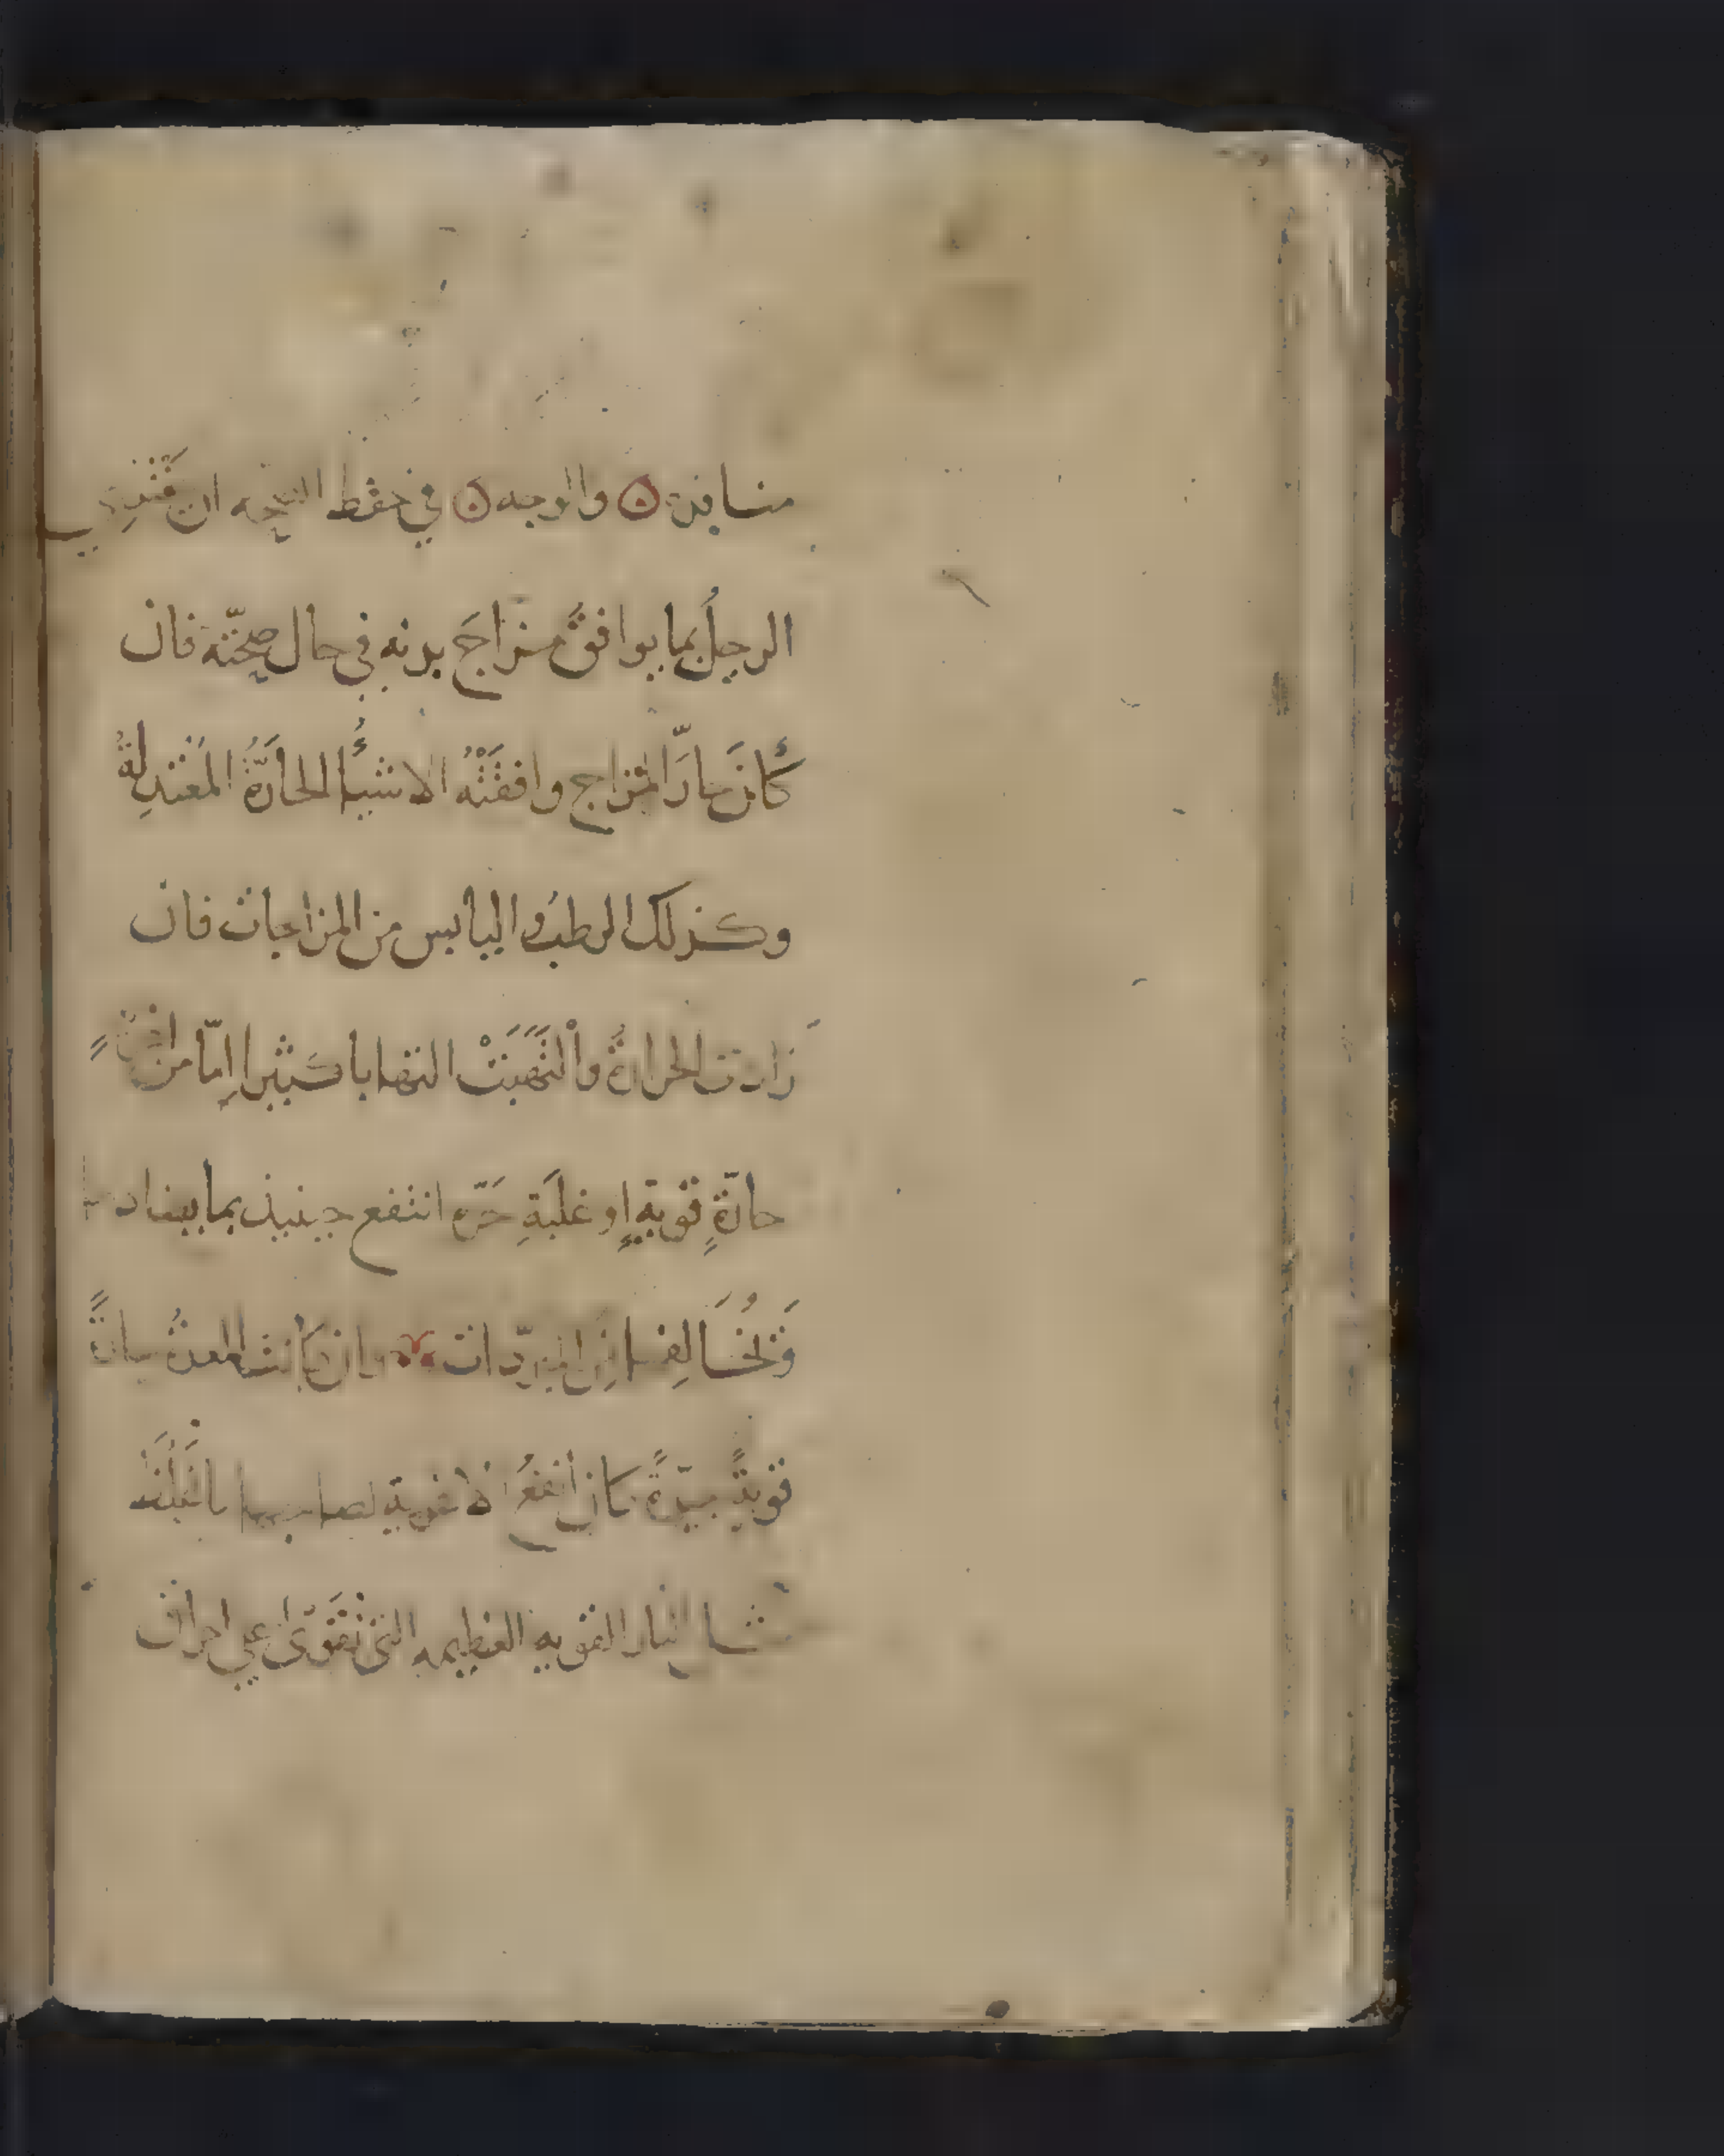 منافذه والوجه في حفظ الصحه ان يغتذي
الرجلُ بما يوافقُ مزاجَ بدنه في حال صحّته فان
كانَ حارَّ المزاج وافقَتْهُ الاشياءُ الحارَّةُ المعتدِلةُ
وكذلك الرطبُ واليابس من المزاجات فان
زادت الحرارةُ والْتَهَبَتْ التهابا كثيرا إمّا من اغذيةٍ
حارّةٍ قويةٍ او غلبَةِ حَرّ انتفع حينيذ بما يضاد
وَيُخَالِفها من المبرّدات وان كانت المعدةُ نارِيَّةً
قويةً جيّدةً كان أنفعُ الاغذية لصاحبها ما غَلُظَ
النار القويه العظيمه التي تَقوَى على احراق